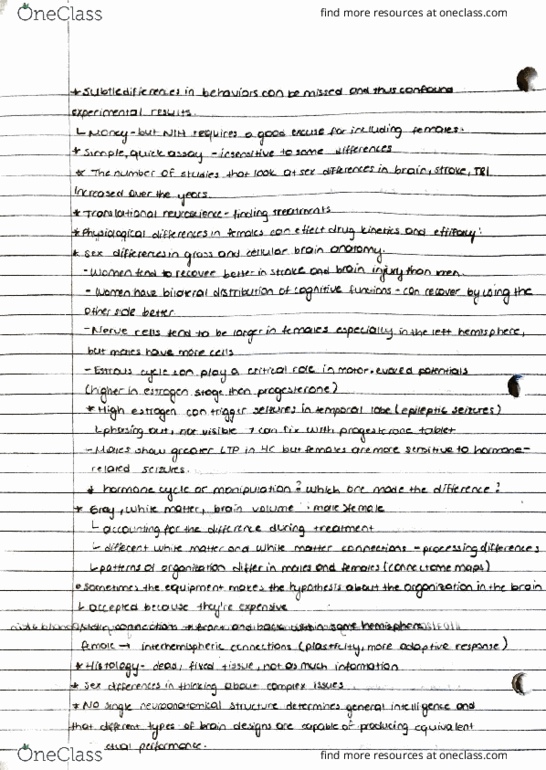 OneClass
find more resources at oneclass.com
* Subtle differences in behaviors can be missed and thus confound
experimental results.
↳ Money - but NIH requires a good excuse for including females.
* Simple, quick assay - insensitive to some differences
* The number of studies that look at sex differences in brain, stroke, TBI
increased over the years.
* Translational neuroscience - finding treatments
* Physiological differences in females can effect drug kinetics and effifacy:
* Sex differences in gross and cellular brain anatomy.
- Women tend to recover better in stroke and brain injury than men.
- Women have bilateral distribution of cognitive functions - can recover by using the
other side better
- Nerve cells tend to be larger in females especially in the left hemisphere,
but males have more cells
- Estrous cycle can play a critical role in motor-evoked potentials
(higher in estrogen stage then progesterone)
* High estrogen can trigger seizures in temporal lobe (epileptic seizures)
↳ phasing out, not visible → can fix with progesterone tablet
- Males show greater LTP in HC but females are more sensitive to hormone-
related seizures.
* hormone cycle or manipulation? which one made the difference?
* Gray, white matter, brain volume : male > female
↳ accounting for the difference during treatment
↳ different white matter and white matter connections - processing differences
↳ patterns of organization differ in males and females (connectome maps)
• Sometimes the equipment makes the hypothesis about the organization in the brain
↳ accepted because they're expensive
connections → front and back within same hemisphere
female → interhemispheric connections (plasticity, more adaptive response)
* Histology - dead, fixed tissue, not as much information
* Sex differences in thinking about complex issues
* No single neuroanatomical structure determines general intelligence and
that different types of brain designs are capable of producing equivalent
performance.
OneClass
find more resources at oneclass.com